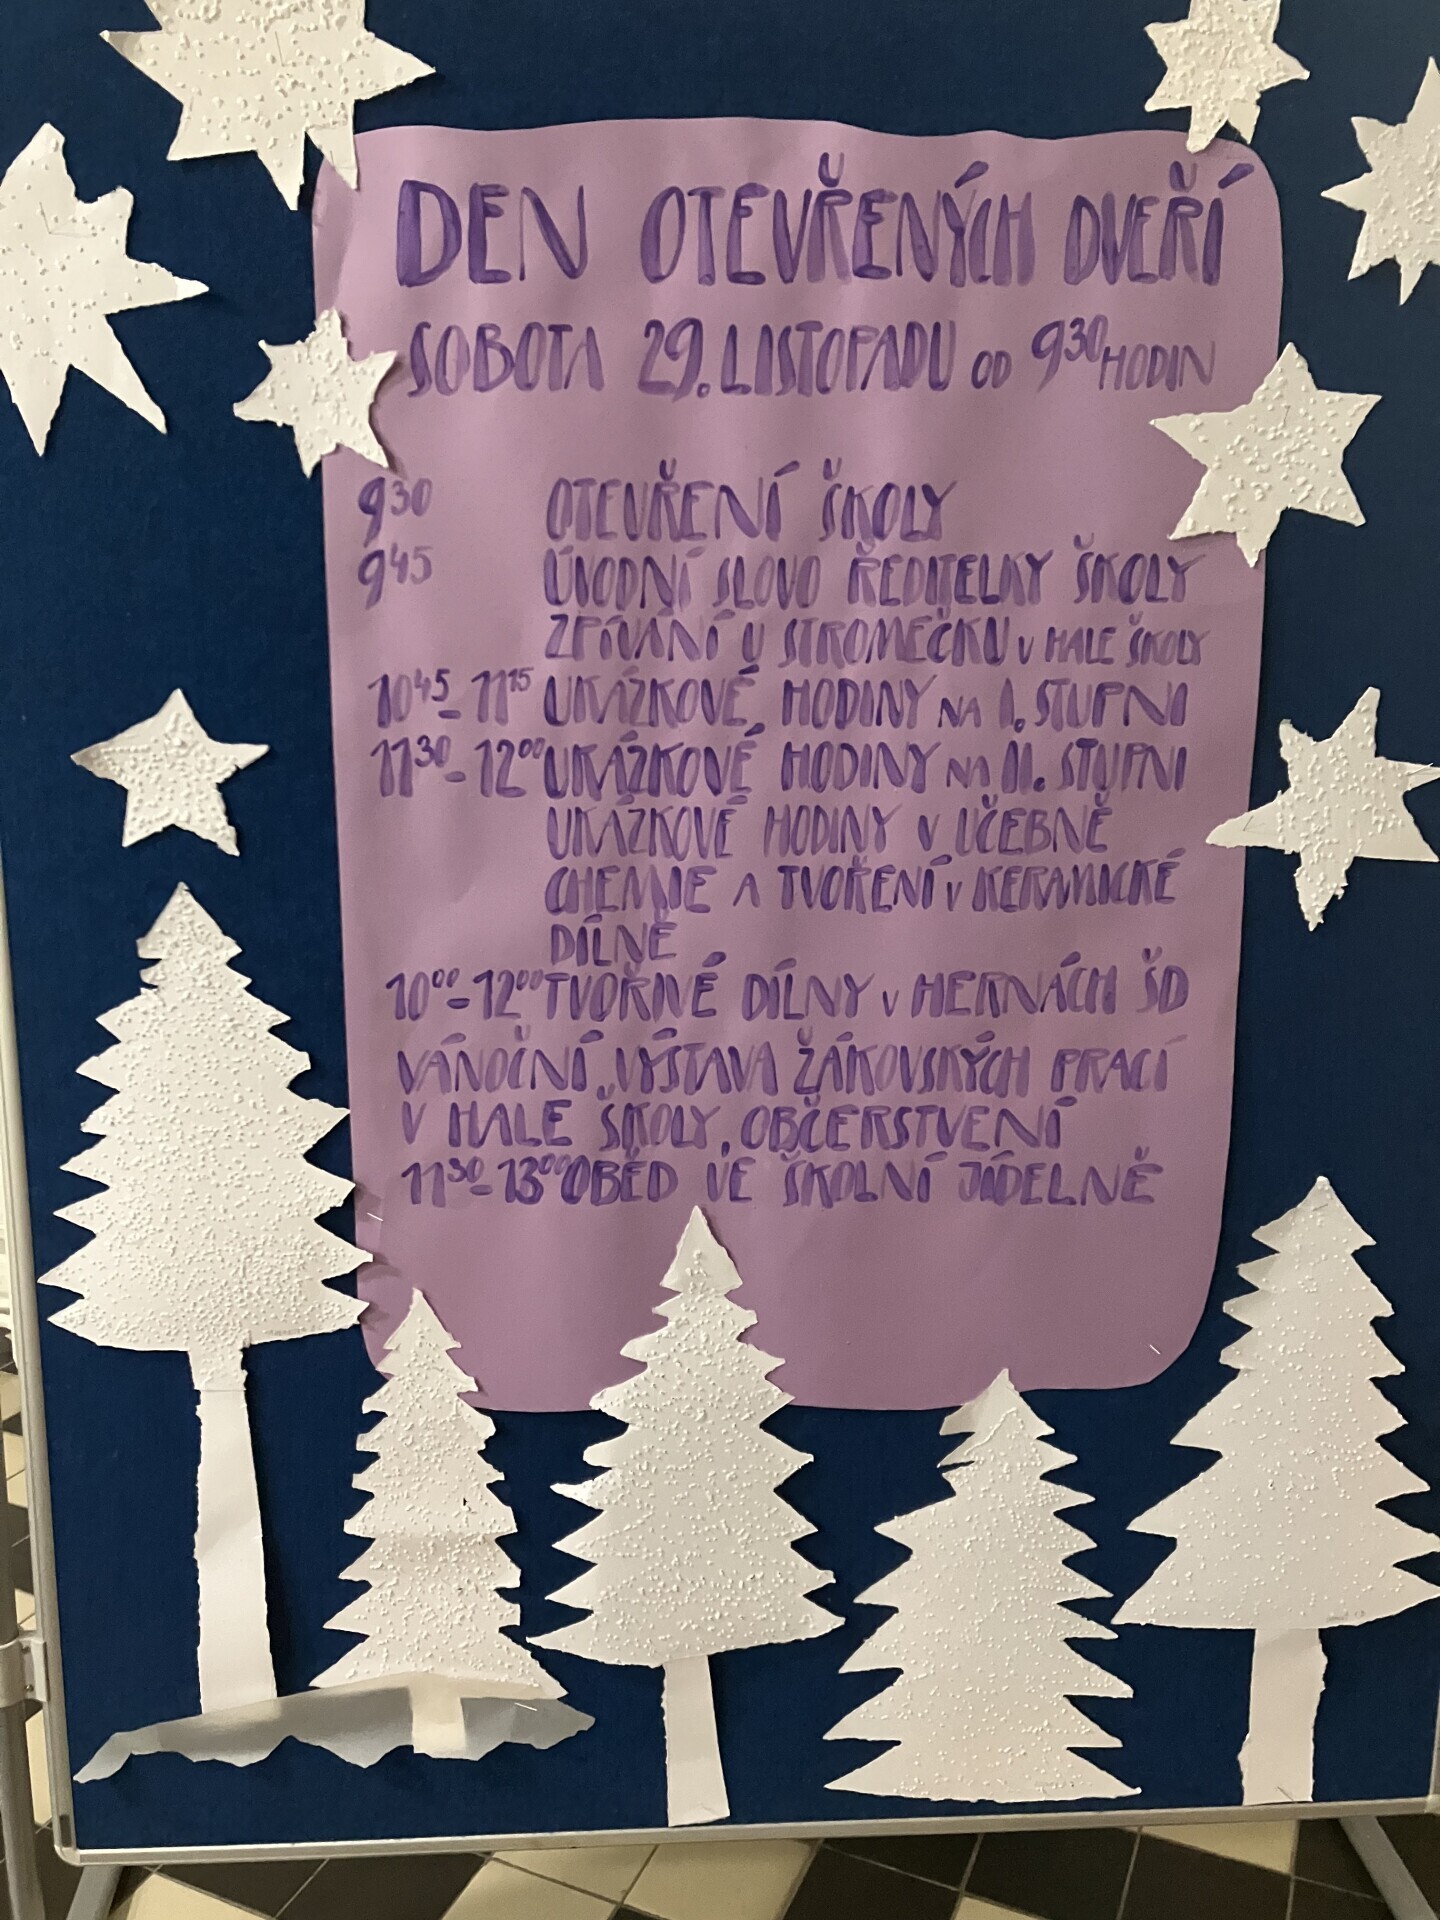 DEN OTEVŘENÝCH DVEŘÍ
SOBOTA 29. LISTOPADU OD 9³⁰ HODIN
9³⁰ OTEVŘENÍ ŠKOLY
9⁴⁵ ÚVODNÍ SLOVO ŘEDITELKY ŠKOLY
ZPÍVÁNÍ U STROMEČKU V HALE ŠKOLY
10⁴⁵-11¹⁵ UKÁZKOVÉ HODINY NA I. STUPNI
11³⁰-12⁰⁰ UKÁZKOVÉ HODINY NA II. STUPNI
UKÁZKOVÉ HODINY V UČEBNĚ
CHEMIE A TVOŘENÍ V KERAMICKÉ
DÍLNĚ
10⁰⁰-12⁰⁰ TVOŘIVÉ DÍLNY V HERNÁCH ŠD
VÁNOČNÍ VÝSTAVA ŽÁKOVSKÝCH PRACÍ
V HALE ŠKOLY, OBČERSTVENÍ
11³⁰-13⁰⁰ OBĚD VE ŠKOLNÍ JÍDELNĚ